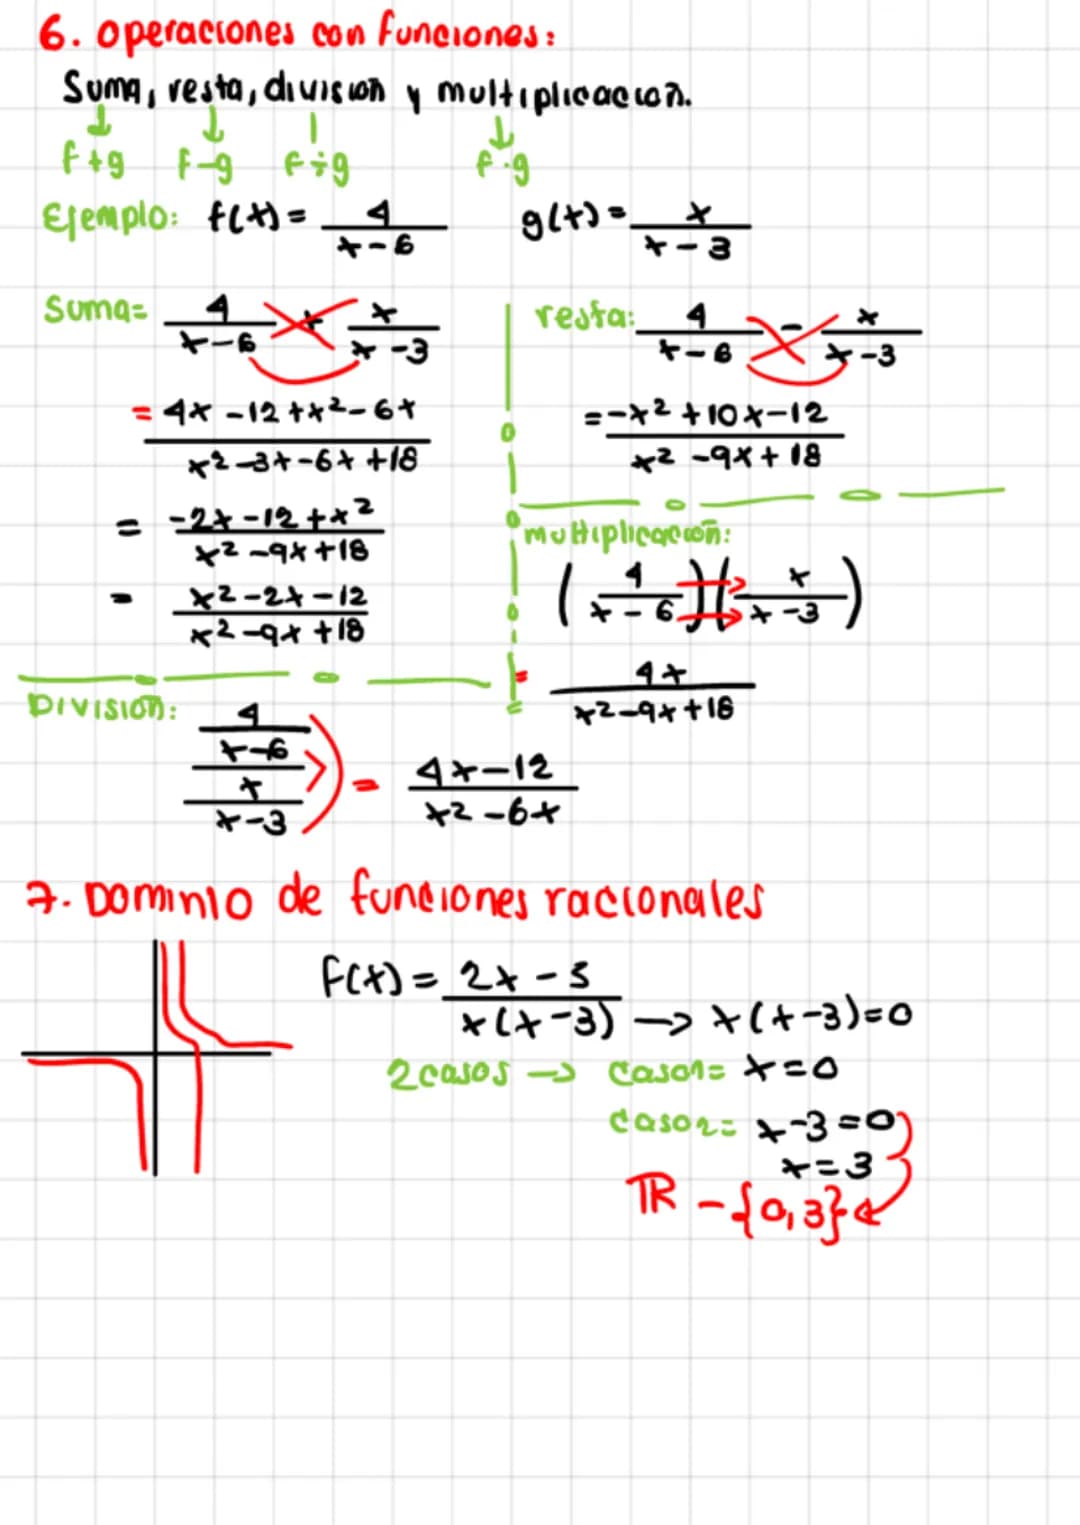 6. operaciones con funciones:
Suma, resta, división y multiplicación.
f+g f-g f÷g f·g
Ejemplo: f(x) = 4/(x-6) g(x) = x/(x-3)
Suma= 4/(x-6) + x/(x-3)
= (4x -12 +x² -6x)/(x² -3x -6x +18)
= (-2x -12 +x²)/(x² -9x +18)
= (x² -2x -12)/(x² -9x +18)
resta: 4/(x-6) - x/(x-3)
= (-x² +10x -12)/(x² -9x +18)
multiplicación:
(4/(x-6))(x/(x-3))
= 4x/(x² -9x +18)
División:
(4/(x-6))/(x/(x-3)) = (4x-12)/(x² -6x)
7. Dominio de funciones racionales
F(x) = (2x-5)/(x(x-3)) → x(x-3)=0
2 casos → caso1= x=0
caso2= x-3=0
x=3
ℝ - {0,3}